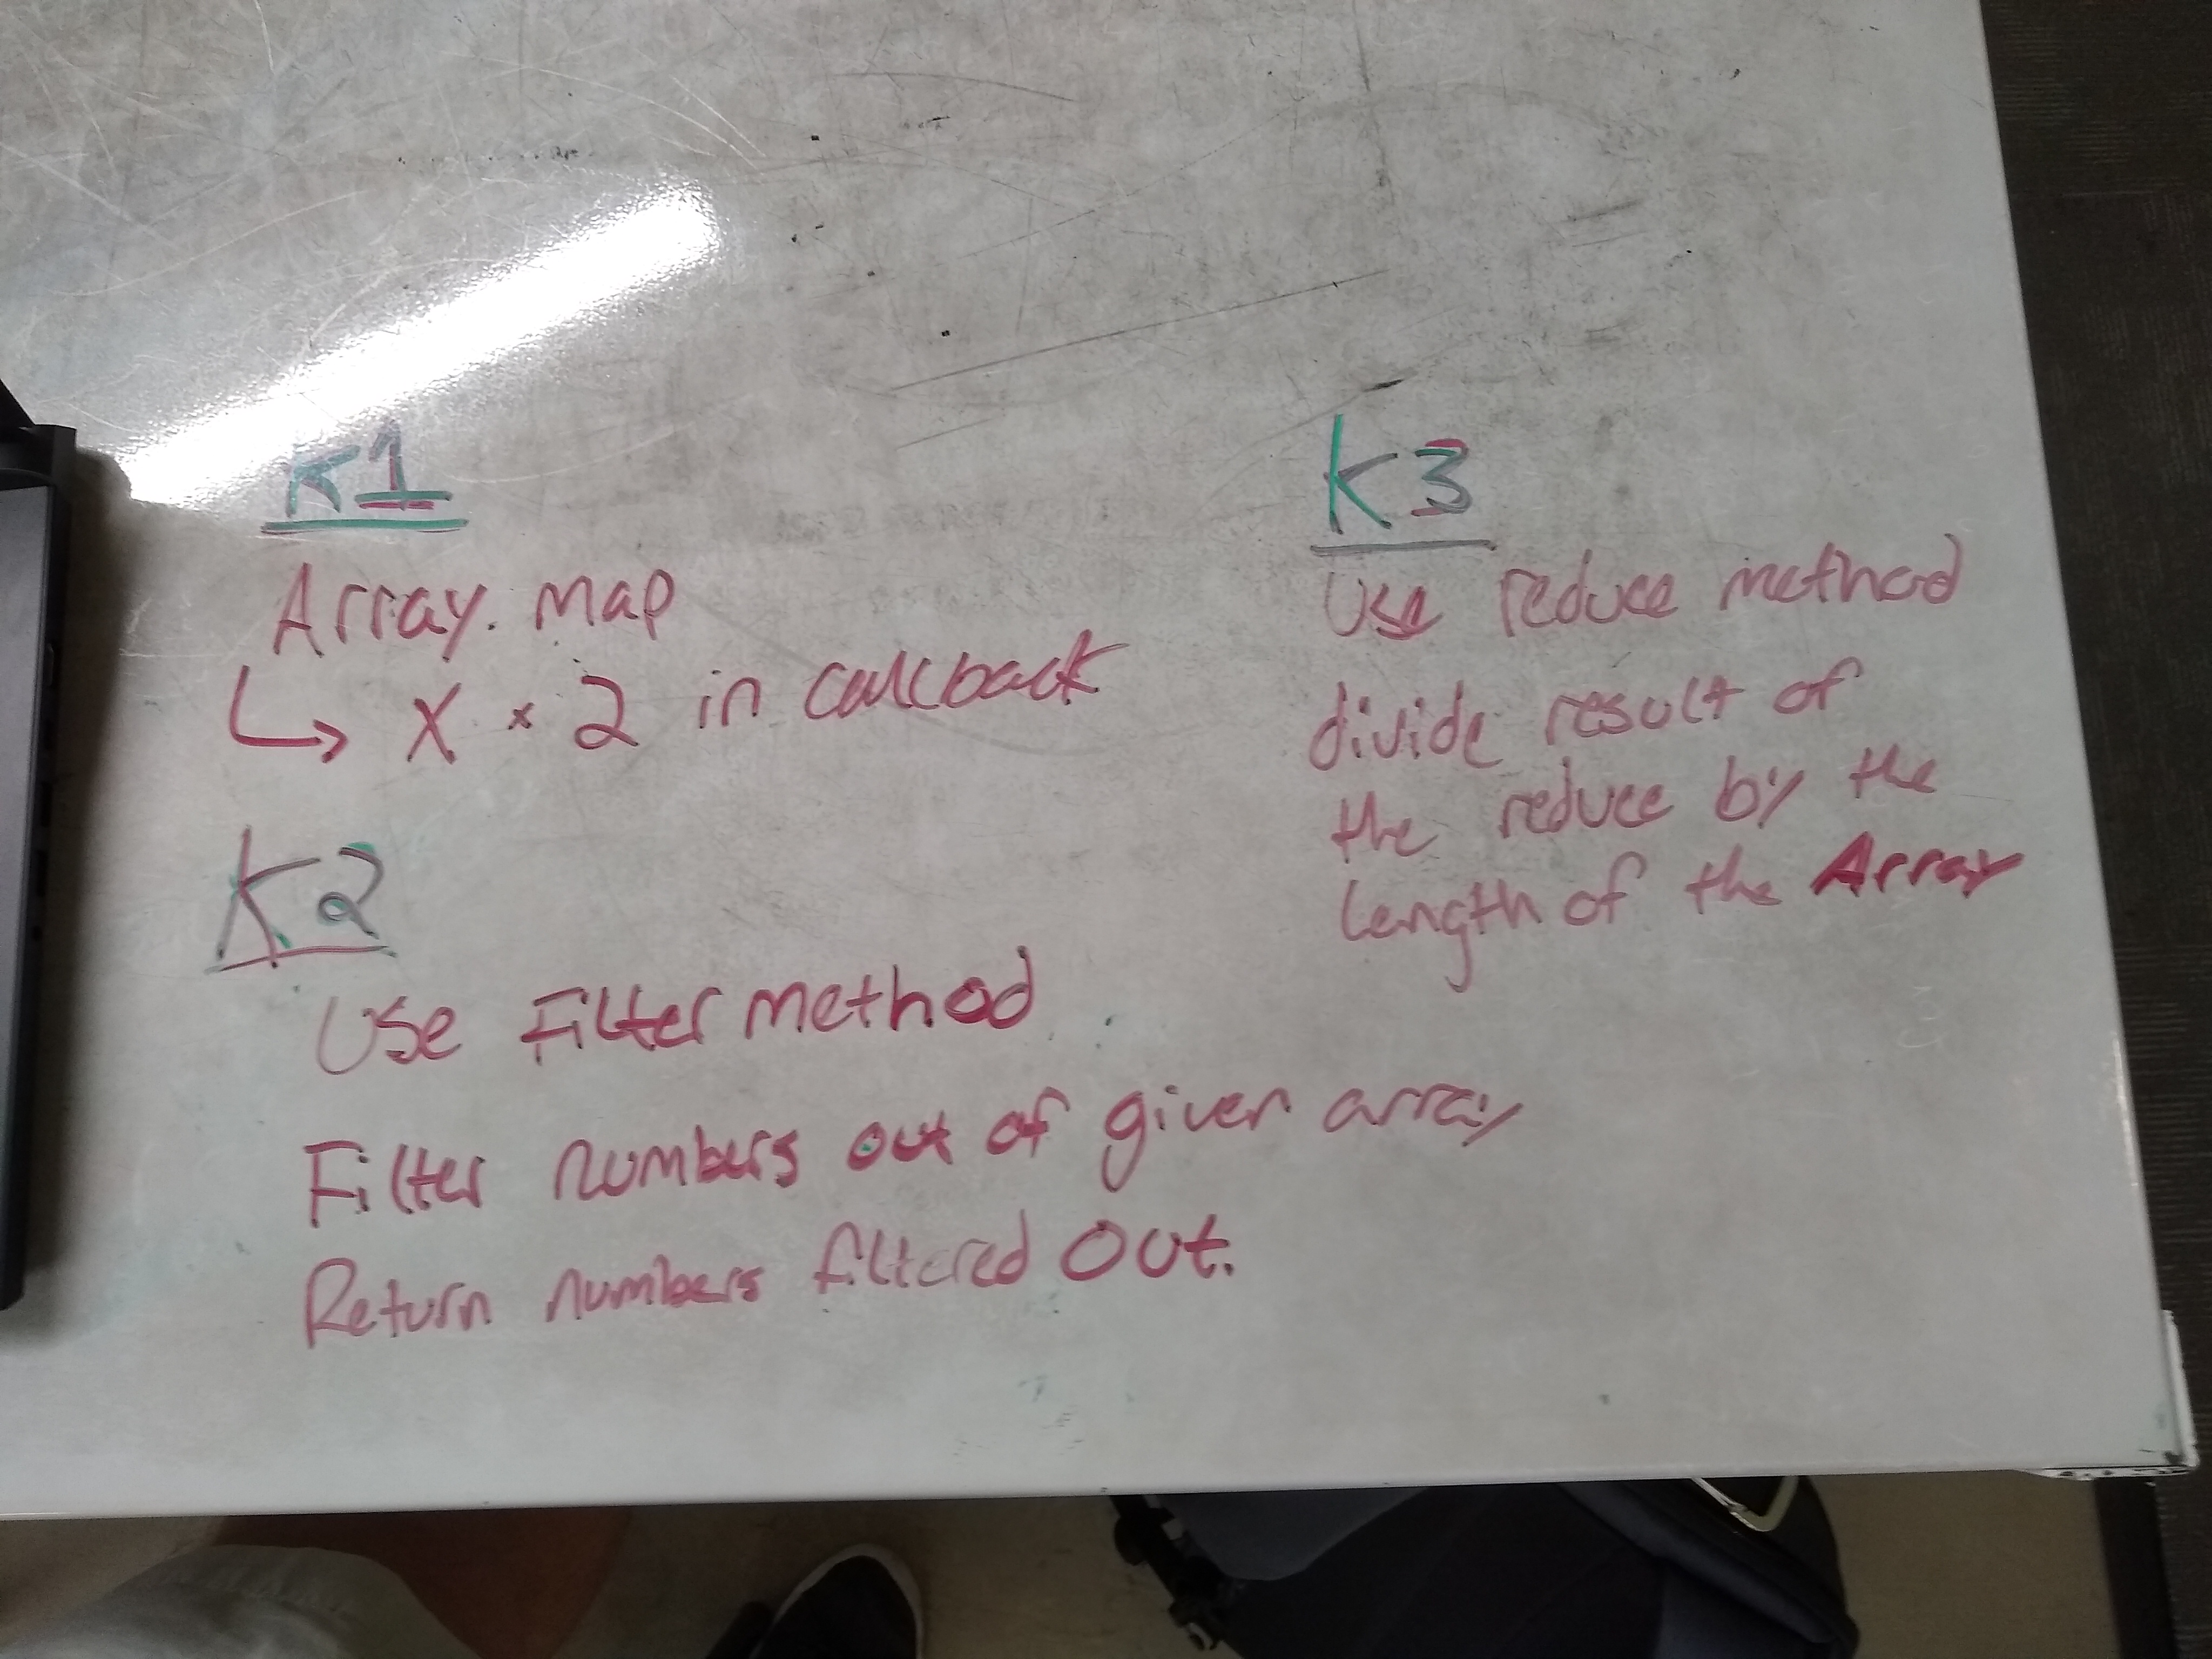 K1
Array. map
↳ X × 2 in callback
K2
Use Filter method
Filter numbers out of given array
Return numbers filtered out.
K3
Use reduce method
divide result of
the reduce by the
length of the Array